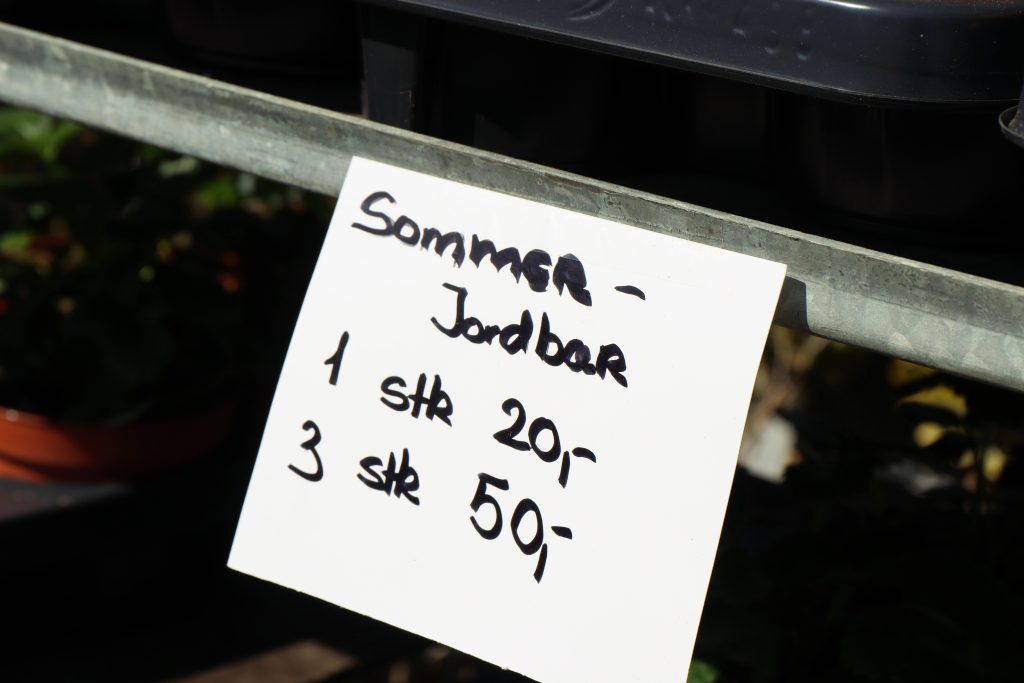 Sommer -
Jordbar
1 stk 20,-
3 stk 50,-